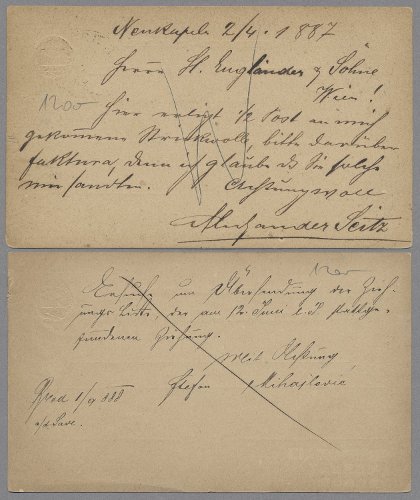 Neukapela 2/4. 1887
Herrn H. Engländer & Söhne
Wien!
1200
Hier erliegt 1/2 Post an mich
gekommene Strickwolle, bitte darüber
faktura, denn ich glaube das Sie solche
mir sandten. Achtungsvoll
Alexander Seitz
1200
Ersuche um Übersendung der Zieh-
ungs Liste, der am 12. Juni l. J. stattge-
fundenen Ziehung.
Mit Achtung
Stefan Mihajlović
Brod 1/9 888
a/d Save.